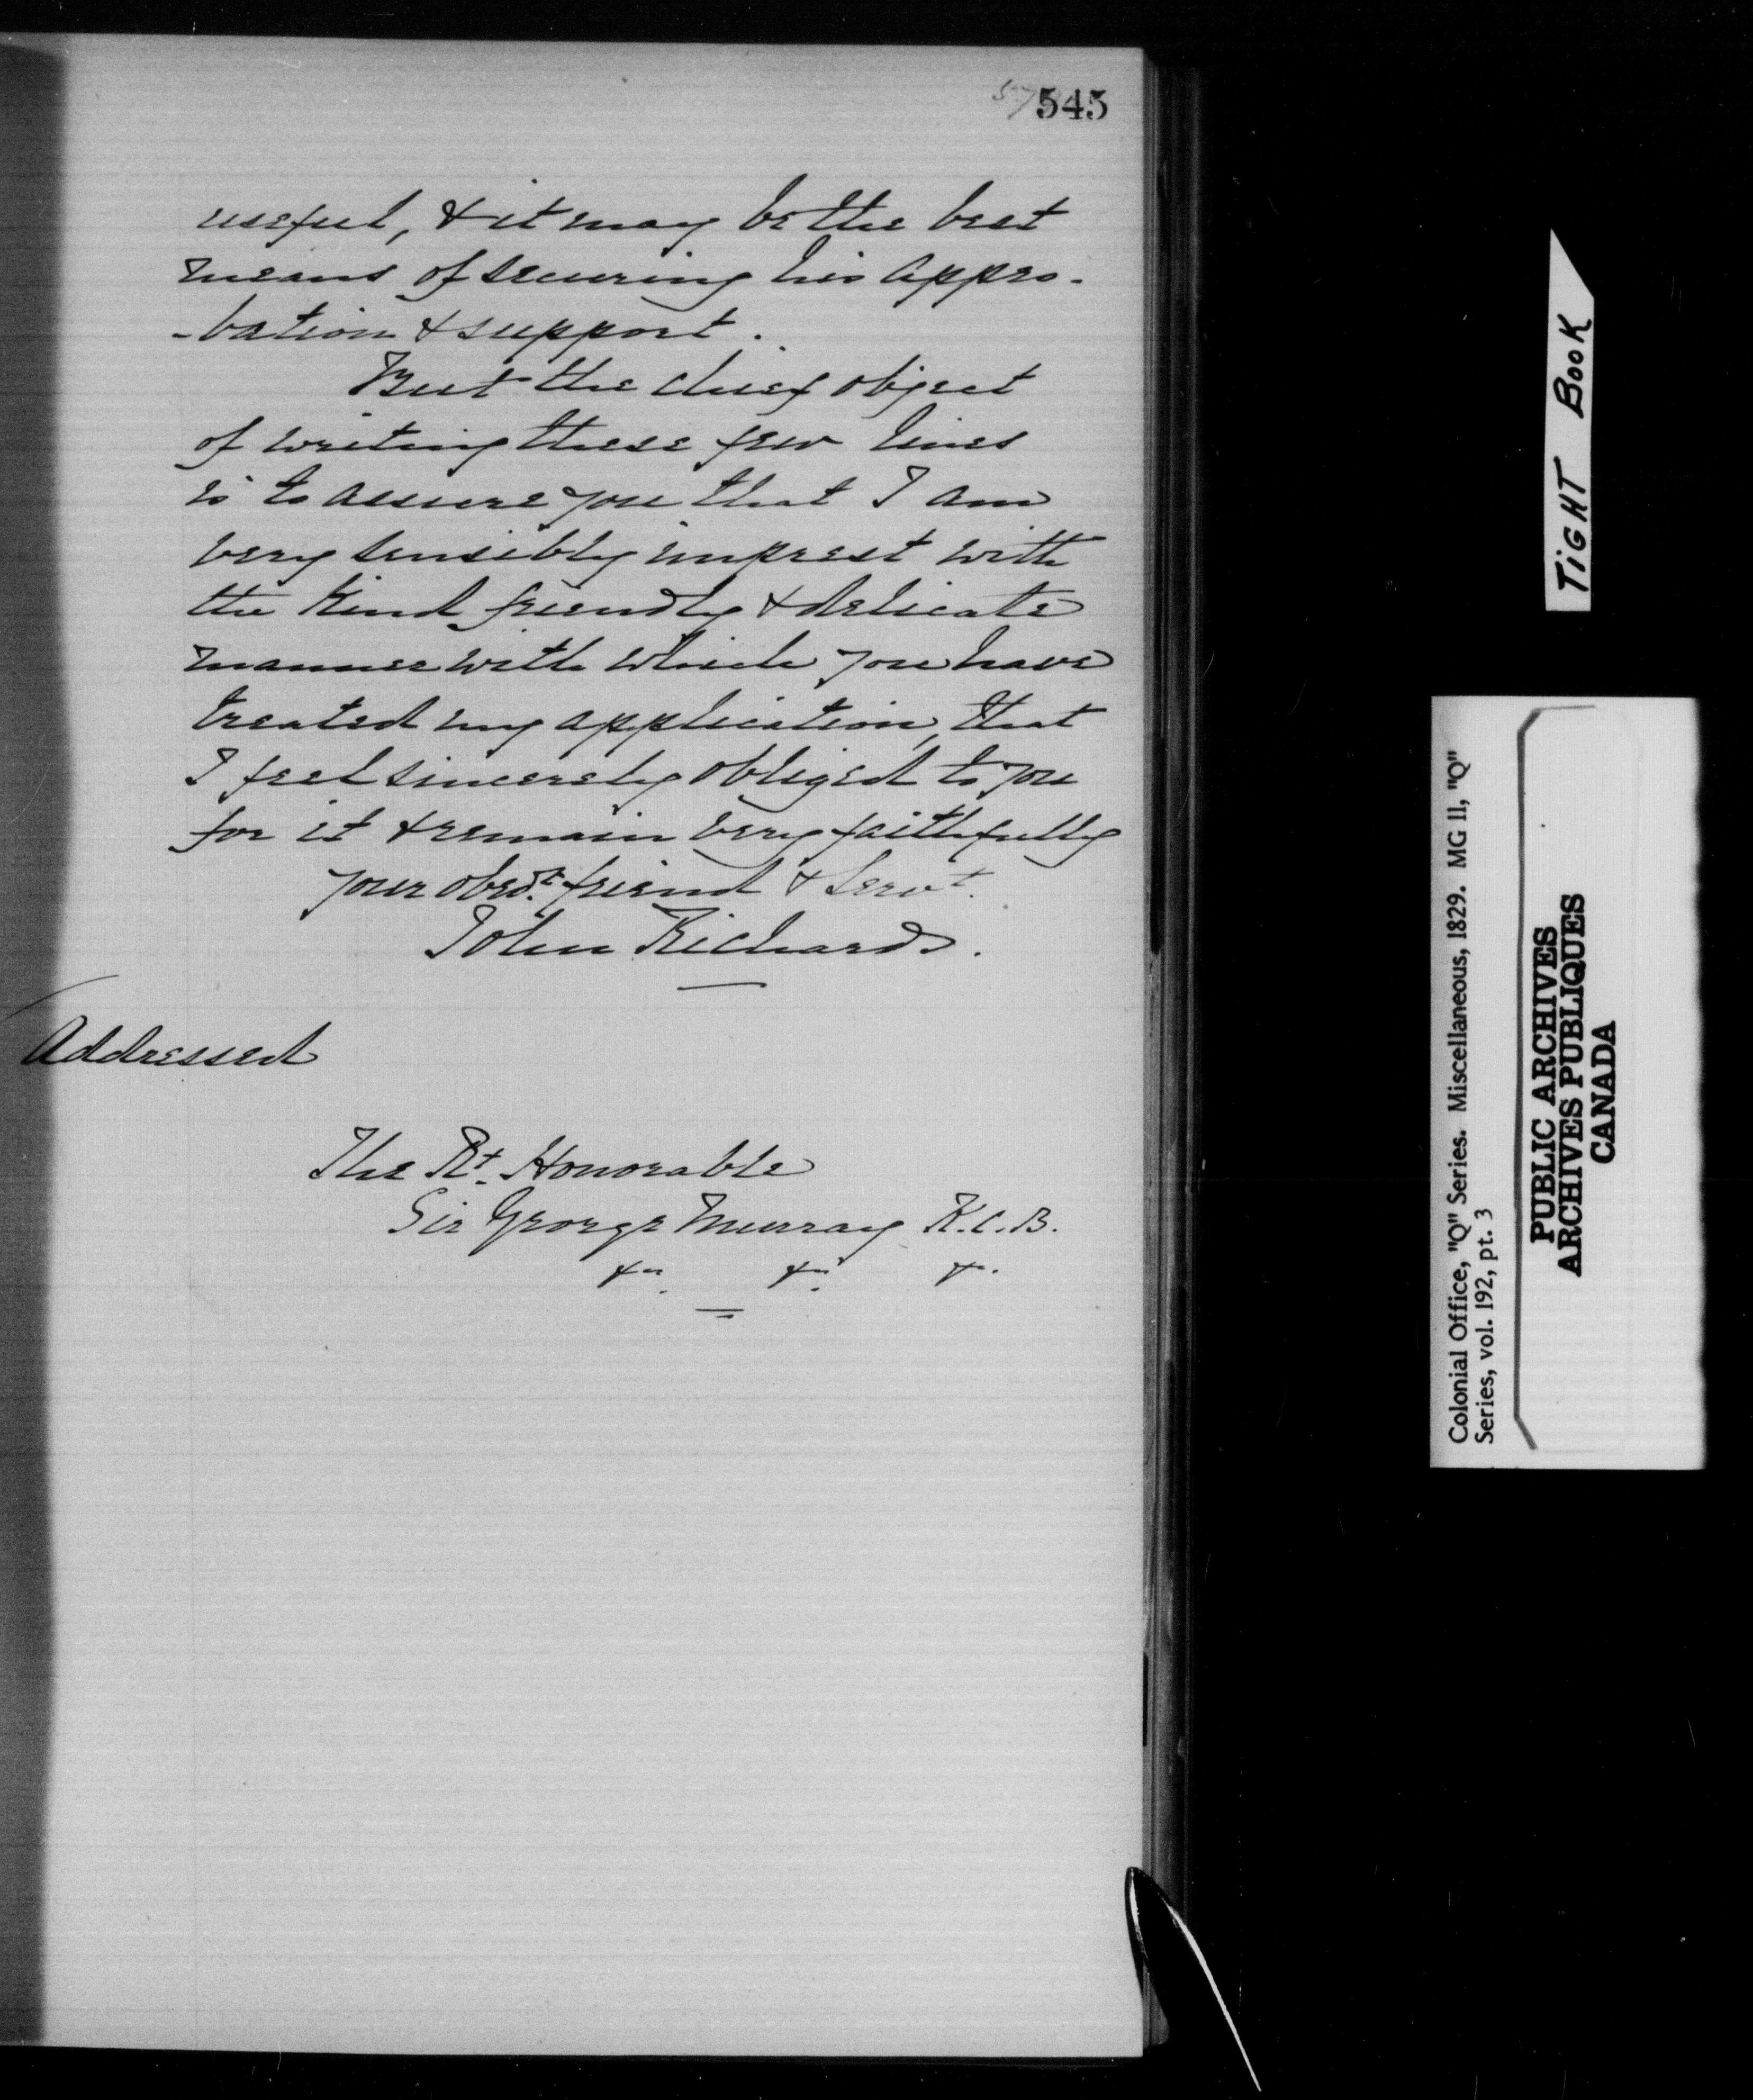 545
useful, & it may be the best
means of securing his appro-
-bation & support.
But the chief object
of writing these few lines
is to assure you that I am
very sensibly imprest with
the kind friendly & delicate
manner with which you have
treated my application, that
I feel sincerely obliged to you
for it & remain very faithfully
your obedt. friend & Servt.
John Richards.
Addressed
The Rt. Honorable
Sir George Murray K.C.B.
&c. &c. &c.
TIGHT BOOK
Colonial Office, "Q" Series. Miscellaneous, 1829. MG 11, "Q"
Series, vol. 192, pt. 3
PUBLIC ARCHIVES
ARCHIVES PUBLIQUES
CANADA